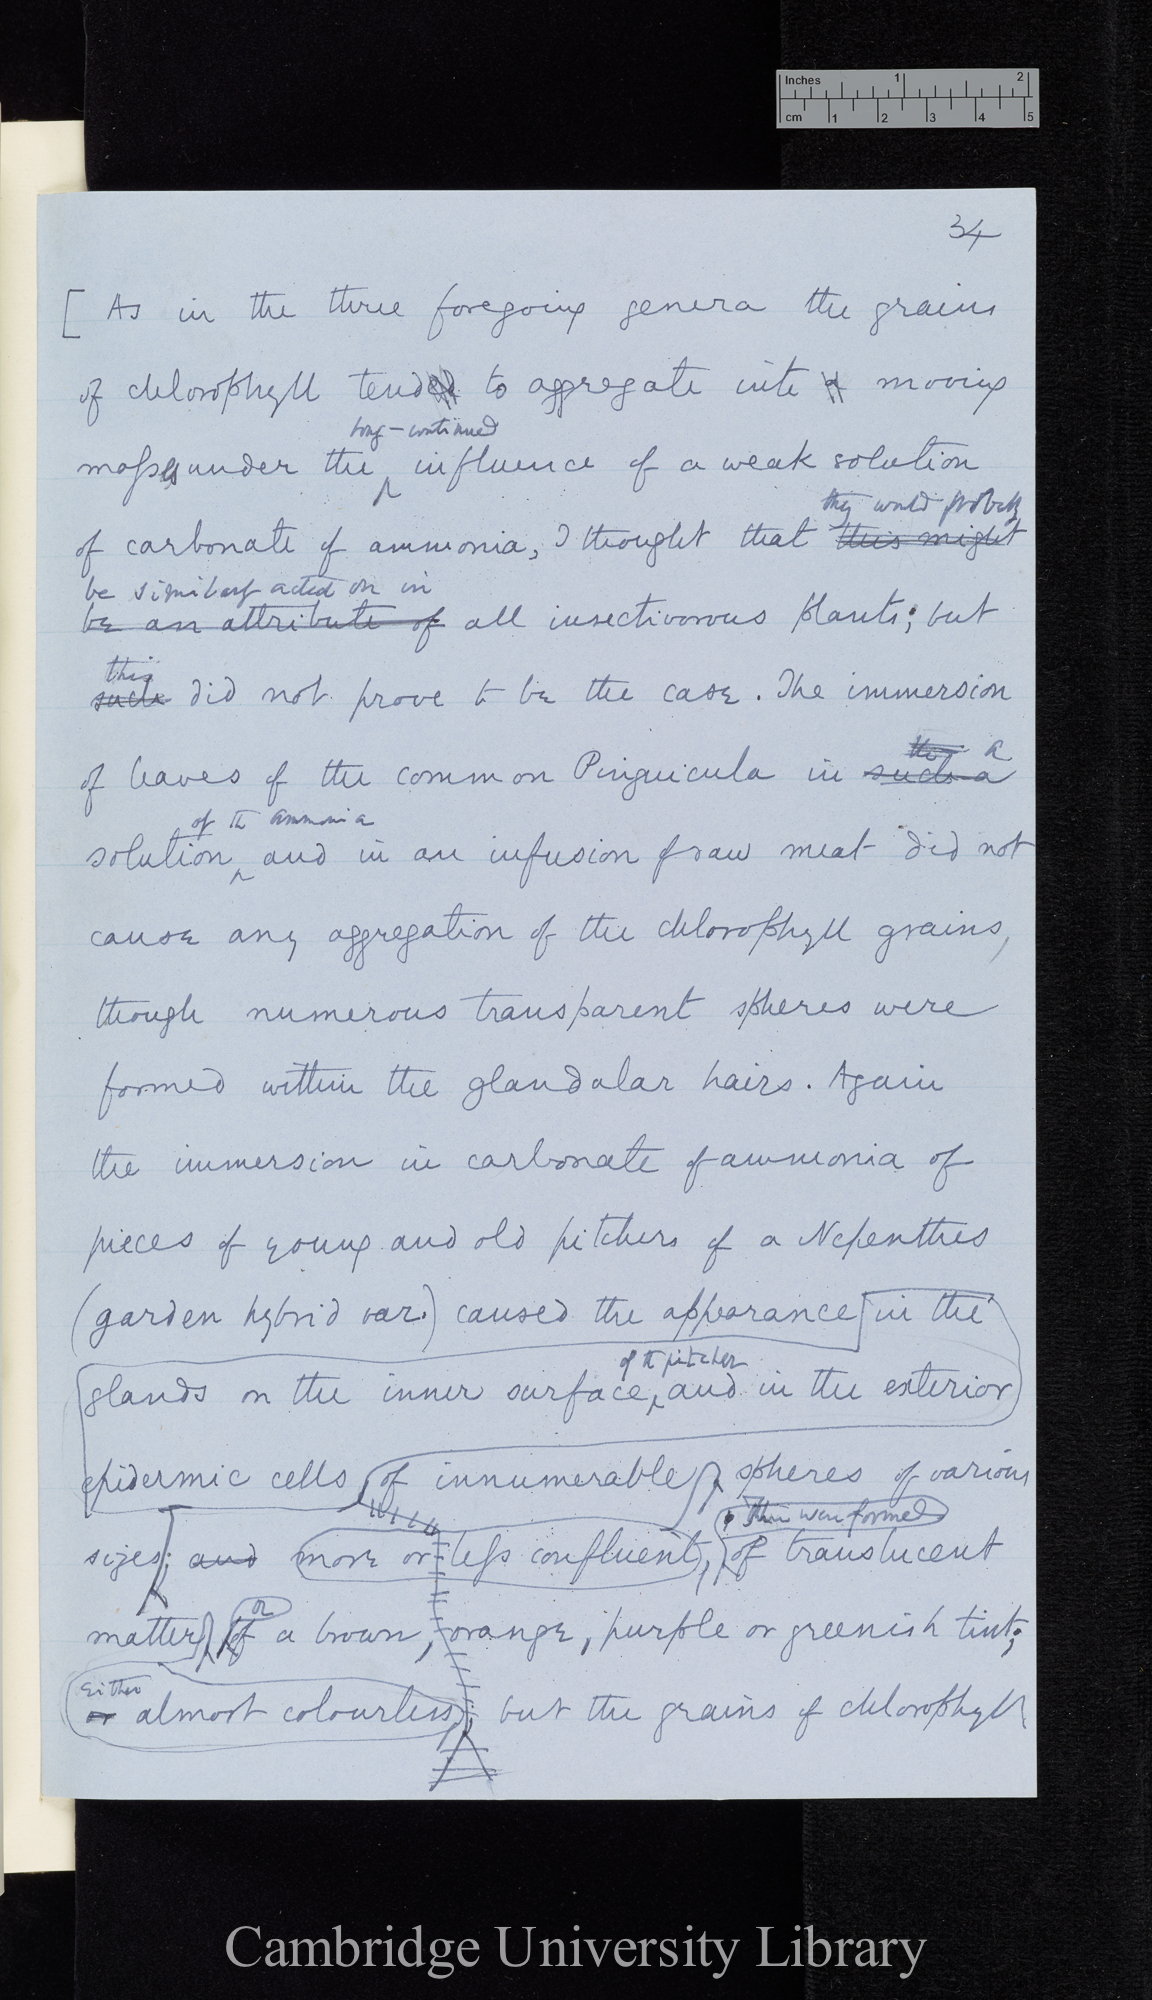 Inches 1 2
cm 1 2 3 4 5
34
[ As in the three foregoing genera the grains
of chlorophyll tended to aggregate into a moving
long-continued
masses under the influence of a weak solution
they would probably
of carbonate of ammonia, I thought that this might
be similarly acted on in
be an attribute of all insectivorous plants; but
this
such did not prove to be the case. The immersion
the a
of leaves of the common Pinguicula in such a
of the ammonia
solution, and in an infusion of raw meat did not
cause any aggregation of the chlorophyll grains,
though numerous transparent spheres were
formed within the glandular hairs. Again
the immersion in carbonate of ammonia of
pieces of young and old pitchers of a Nepenthes
(garden hybrid var.) caused the appearance in the
of the pitcher
glands on the inner surface, and in the exterior
epidermic cells, of innumerable spheres of various
These were formed
sizes; and more or less confluent, of translucent
or
matter, of a brown, orange, purple or greenish tint;
either
or almost colourless; but the grains of chlorophyll
Cambridge University Library